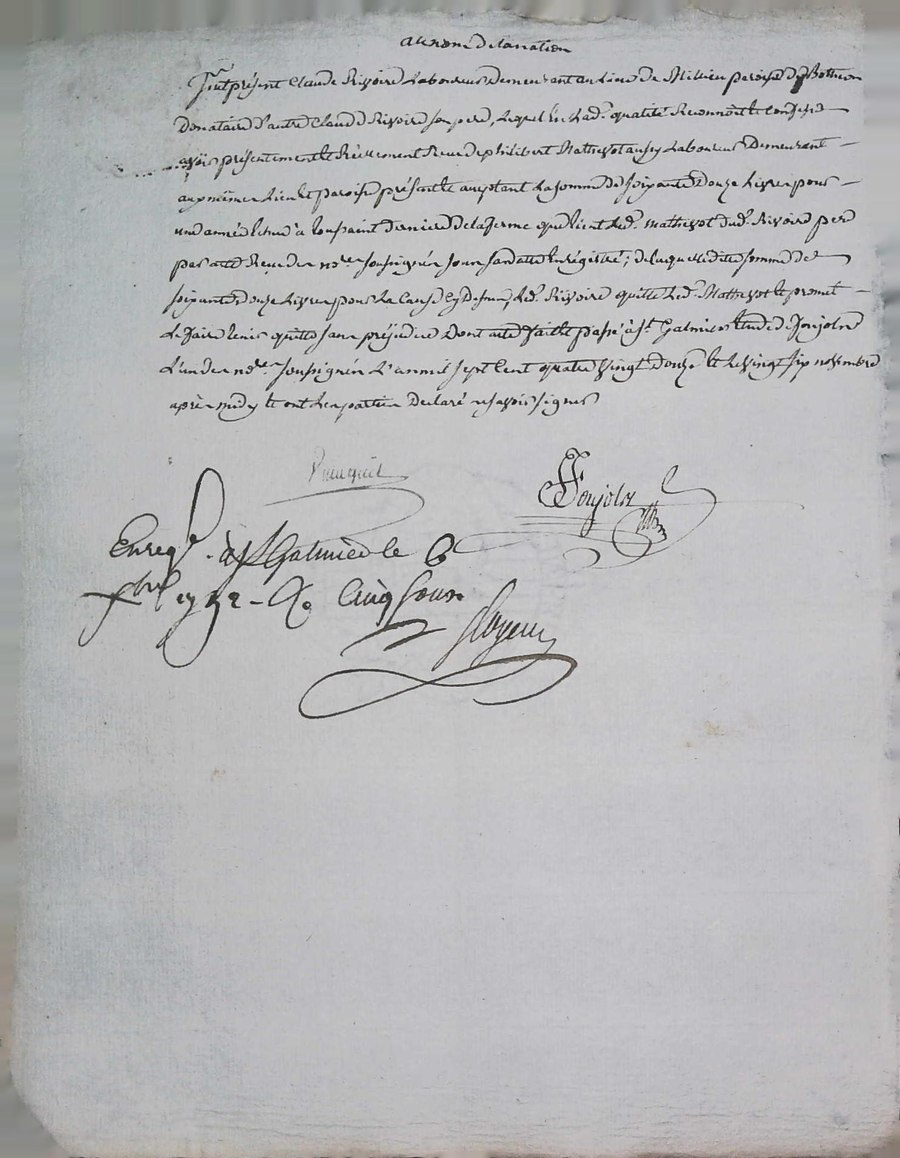 au nom de la nation
Fut présent Claude Rivoire Laboureur demeurant au Lieu de Milieu paroisse de Bothéon
Donataire d'autre Claude Rivoire son pere, Lequel En Lad.e qualité Reconnoit et confesse
avoir présentement et Réellement Receu de philibert Mathevot aussy Laboureur Demeurant
aux mêmes Lieu et paroisse présent et aceptant La somme de soixante Douze Livres pour
une année Echue à toussaint derniere de la ferme que tient Led. Mathevot dud. Rivoire per
par acte Receu des no.res soussignés sous sa datte Enrégistré; de laquelle ditte somme de
soixante douze Livres pour La Cause Cy Dessus, Led. Rivoire quitte Led. Mathevot et promet
Le faire tenir quitte sans préjudice Dont acte fait et passé à S.t Galmier Etude de Foujols
L'un des no.res soussignés L'an mil sept Cent quatre Vingt Douze et Le vingt six novembre
après midy et ont Les parties Declaré ne savoir signer
Foujols
Enreg.é à S.t Galmier le 6
Xbre 1792 - R. Cinq sous